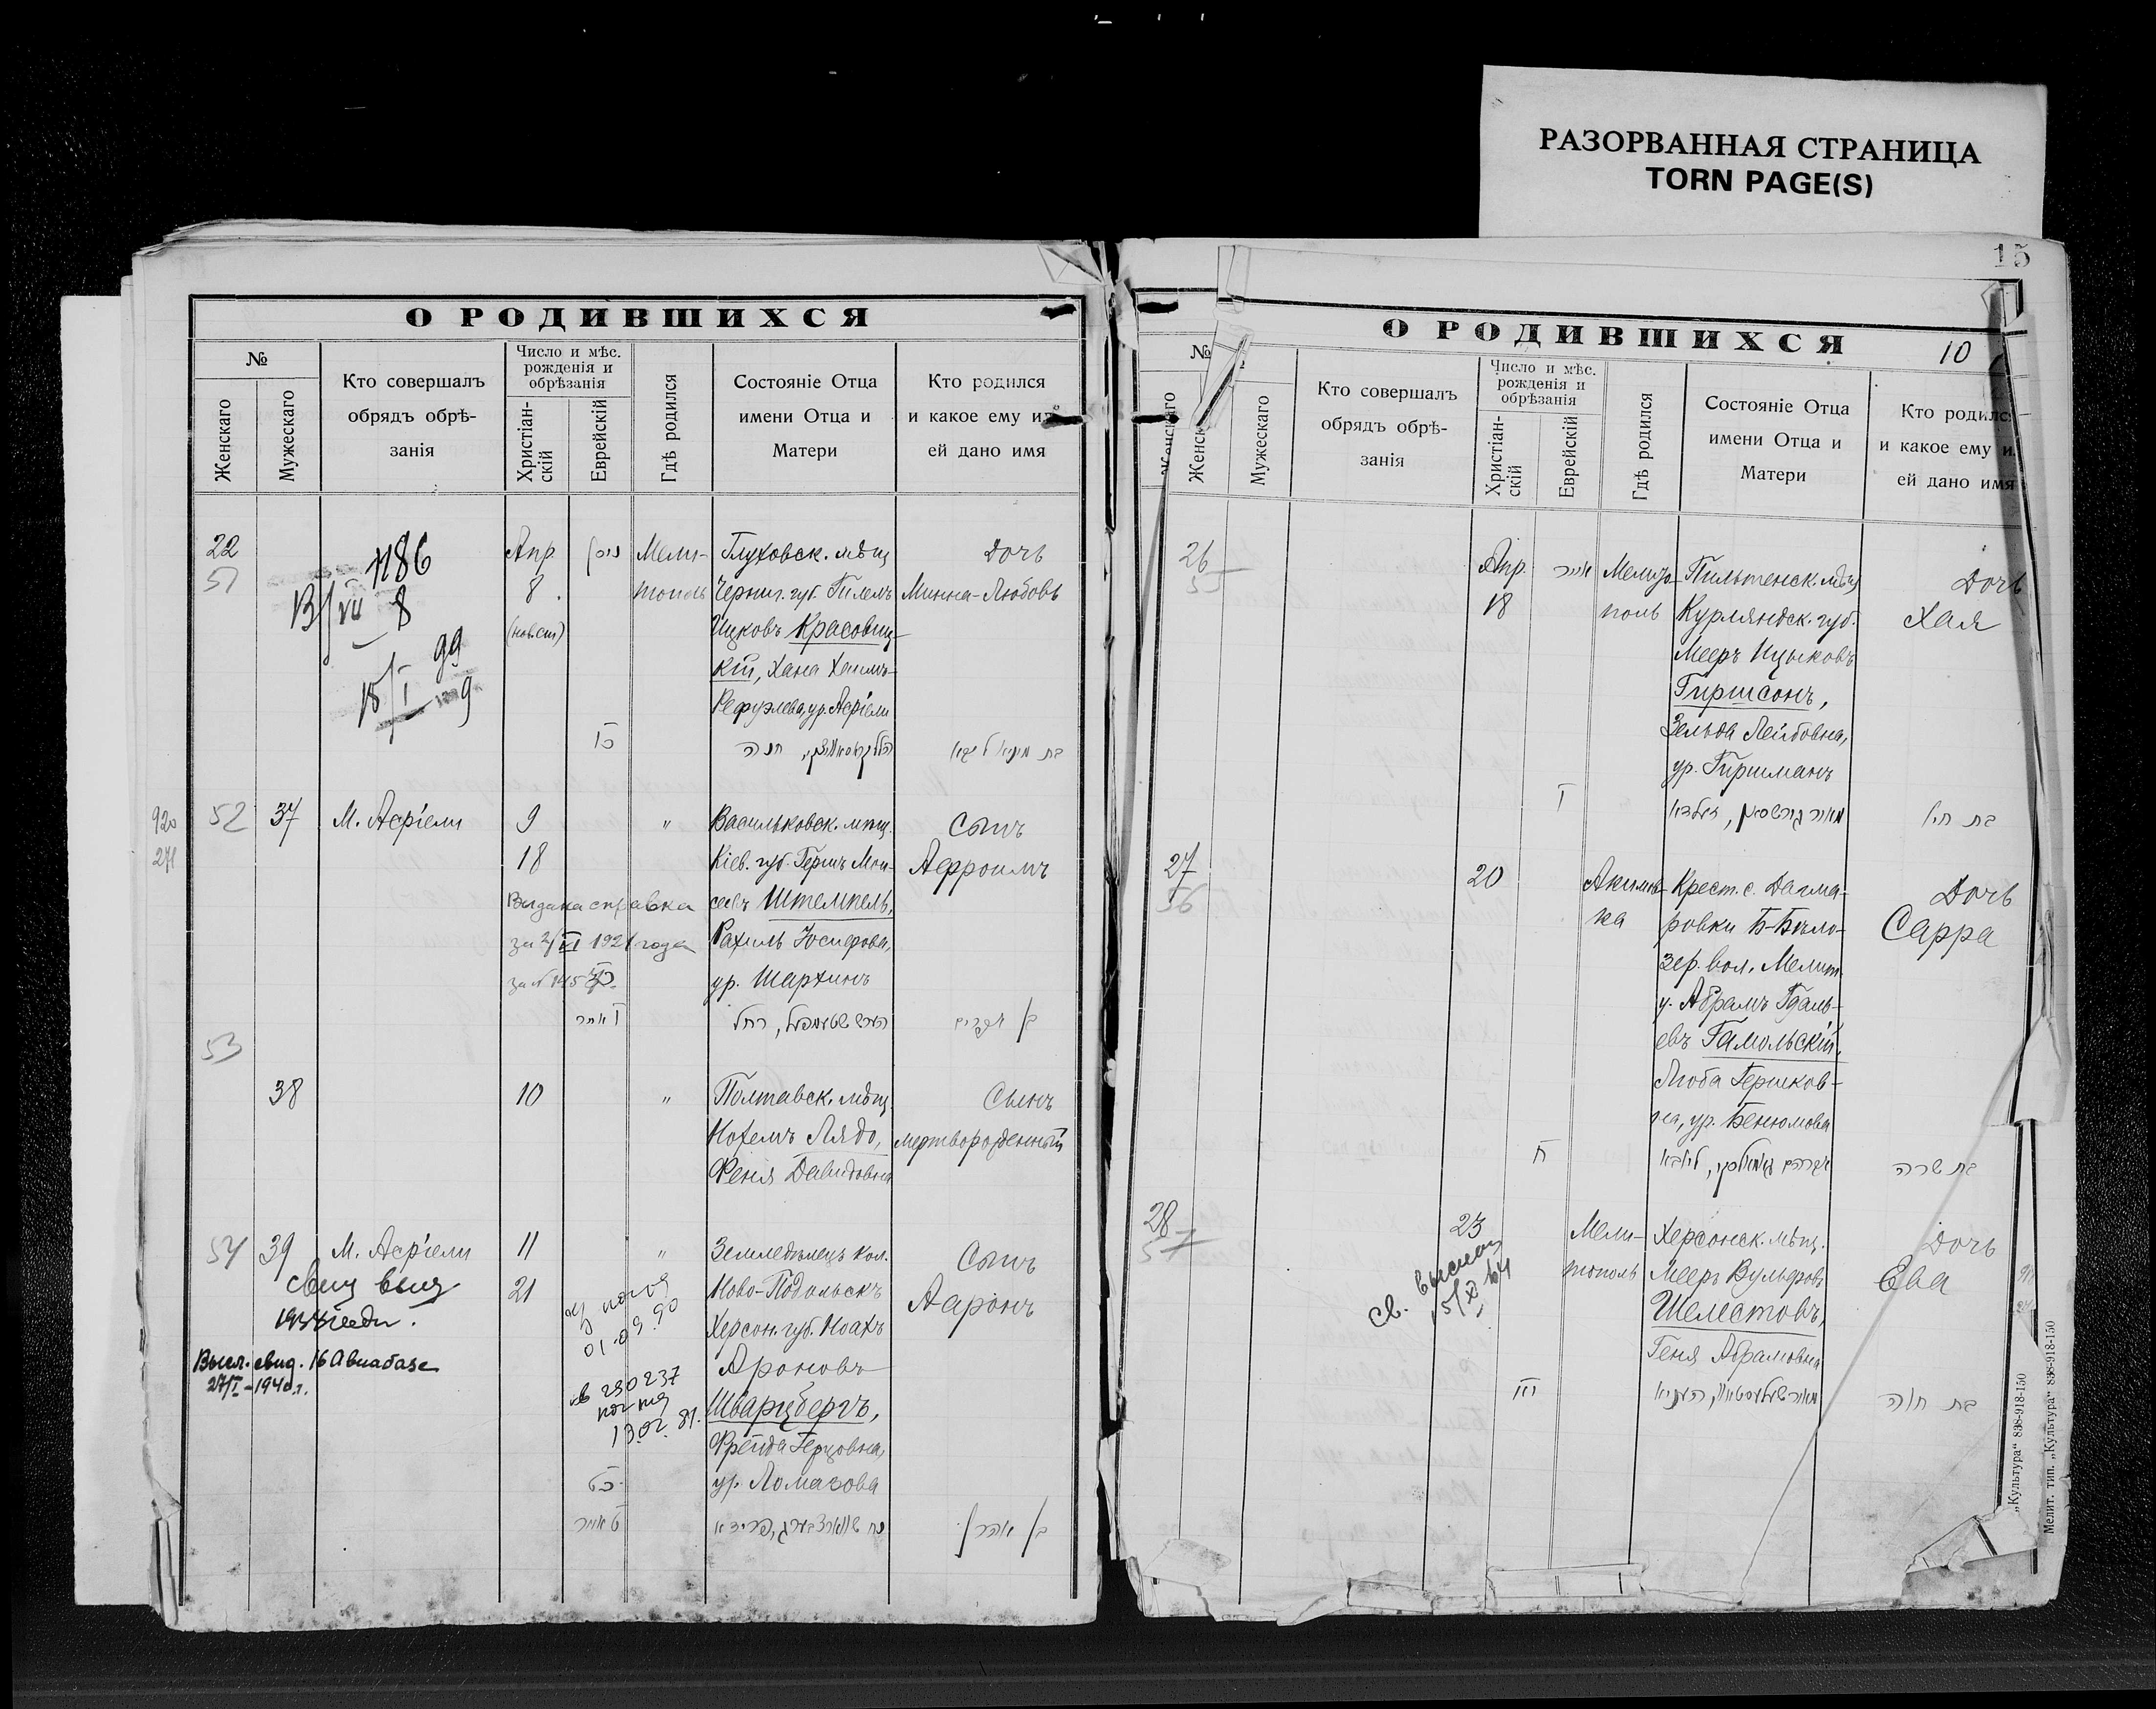 РАЗОРВАННАЯ СТРАНИЦА
TORN PAGE(S)
О РОДИВШИХСЯ
№
Женскаго
Мужескаго
Кто совершалъ
обрядъ обрѣ-
занія
Число и мѣс.
рожденія и
обрѣзанія
Христіан-
скій
Еврейскій
Гдѣ родился
Состояніе Отца
имени Отца и
Матери
Кто родился
и какое ему ил
ей дано имя
22
51
1186
8
99
9
Апр
8
(нов ст)
ניסן
כז
Мели-
тополь
Глуховск. мѣщ
Черниг. губ. Гилелъ
Ицковъ Красовиц-
кій, Хана Хаимъ-
Рефуэлева, ур. Аеріели
Дочь
Минна-Любовь
920
271
52
37
М. Аеріели
9
18
Выдана справка
за 2/VI 1921 года
"
Васильковск. мѣщ.
Кіев. губ. Гершъ Мои-
сеевъ Штемпель,
Рахиль Іосифова,
ур. Шархинъ
Сынъ
Аефроимъ
53
38
10
"
Полтавск. мѣщ.
Нохемъ Лядо,
Феня Давидовна
Сынъ
мертворожденный
54
39
М. Аеріели
11
21
Высл. свид. 16 Авиабазе
27/I-1940 г.
01-09.90
290237
13.02.81.
"
Земледѣлецъ кол.
Ново-Подольскъ
Херсон. губ. Ноахъ
Ароновъ
Шварцбергъ,
Фрейда Герцовна,
ур. Ломазова
Сынъ
Ааронъ
בן אהרן
15
О РОДИВШИХСЯ
10
№
Женскаго
Женск
Мужескаго
Кто совершалъ
обрядъ обрѣ-
занія
Число и мѣс.
рожденія и
обрѣзанія
Христіан-
скій
Еврейскій
Гдѣ родился
Состояніе Отца
имени Отца и
Матери
Кто родилс
и какое ему и
ей дано имя
26
55
Апр.
18
אייר
Мелито-
поль
Пильтенск. мѣщ
Курляндск. губ.
Мееръ Ицыковъ
Гиршсонъ,
Зельда Лейбовна,
ур. Гиршманъ
Дочь
Хая
27
56
20
Акимов-
ка
Крест. с. Дагма-
ровки Б-Бѣло-
зер. вол. Мелит.
у. Абрамъ Гдаль-
евъ Гамольскій,
Люба Гершков-
на, ур. Бенюмова
Дочь
Сарра
בת שרה
28
57
23
Св. выслан
Мели-
тополь
Херсонск. мѣщ.
Мееръ Вульфовъ
Шелестовъ,
Геня Абрамовна
Дочь
Ева
בת חוה
„Культура" 838-918-150
Мелит. тип. „Культура" 838-918-150